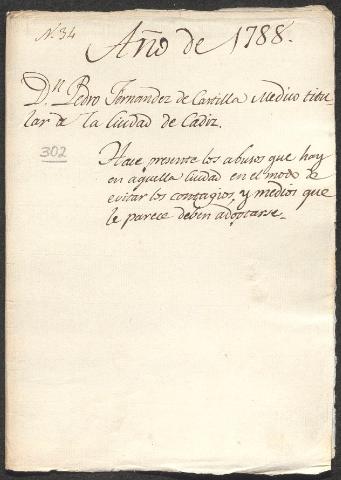 N.º 34
Año de 1788.
D.ⁿ Pedro Fernandez de Castilla Medico titu-
lar de la Ciudad de Cadiz.
302
Hace presente los abusos que hay
en aquella Ciudad en el modo de
evitar los contagios, y medios que
le parece deben adoptarse.